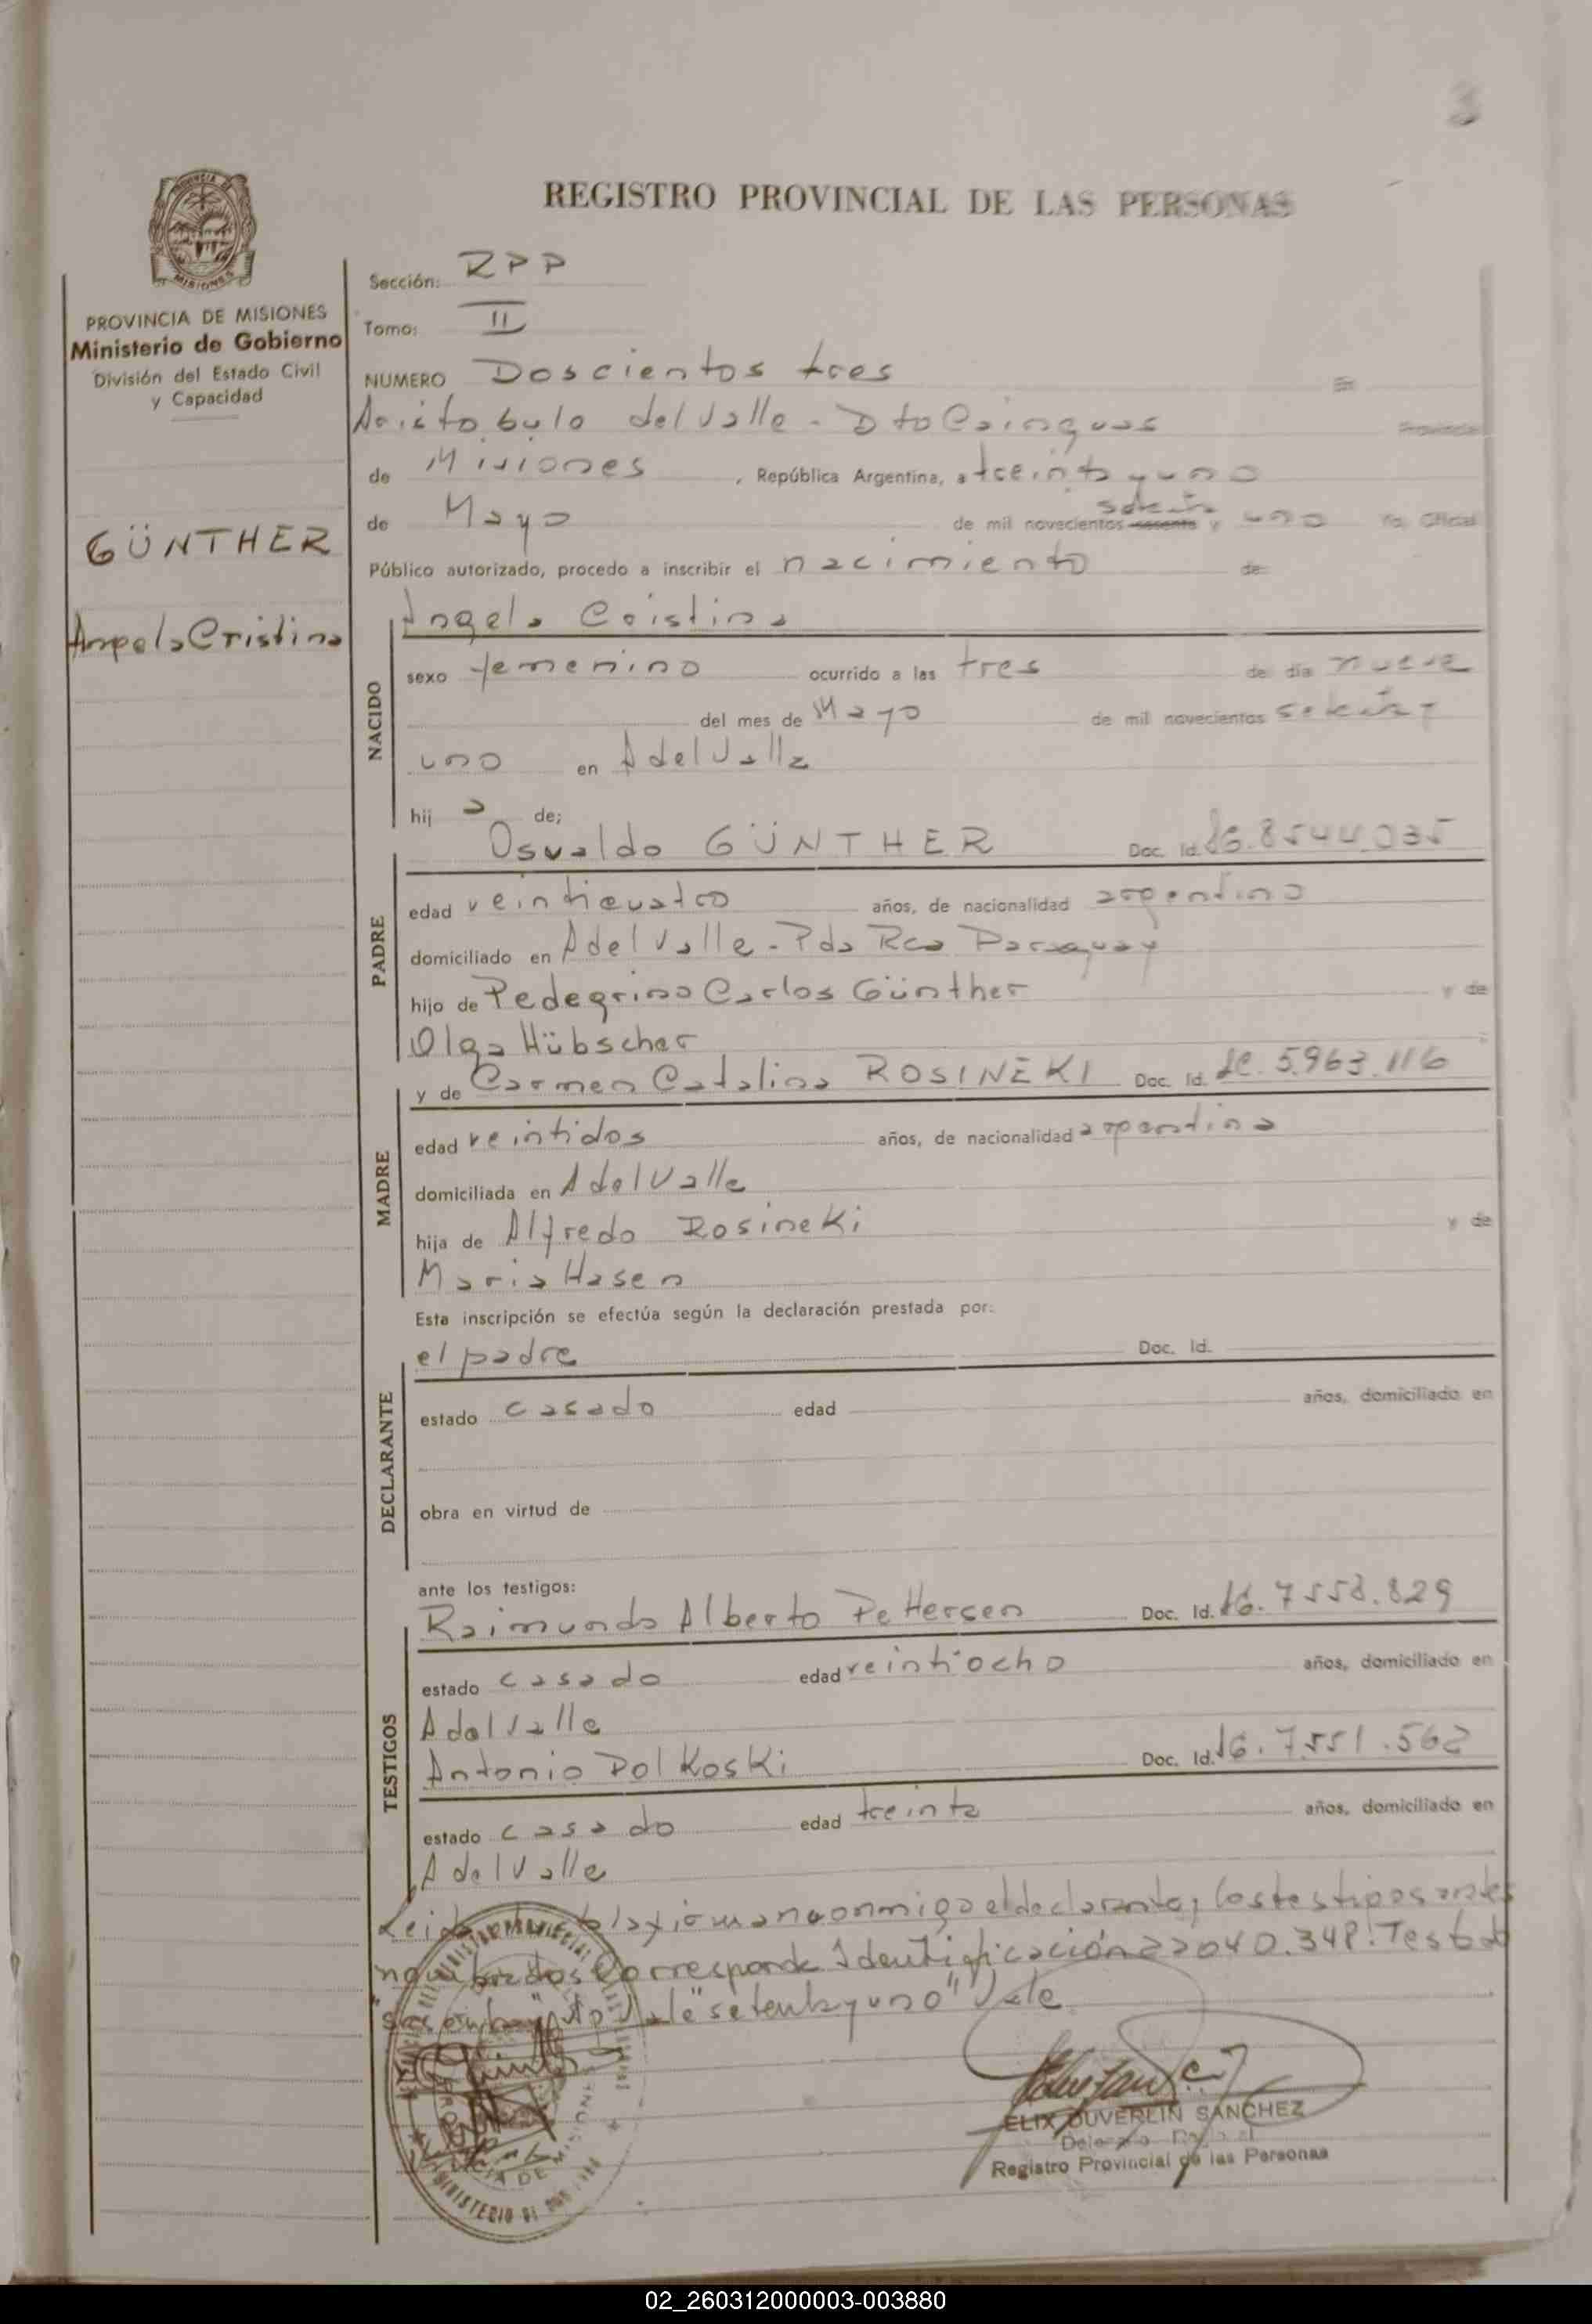 3
REGISTRO PROVINCIAL DE LAS PERSONAS
PROVINCIA DE
MISIONES
PROVINCIA DE MISIONES
Ministerio de Gobierno
División del Estado Civil
y Capacidad
GÜNTHER
Angela Cristina
Sección: RPP
Tomo: II
NUMERO Doscientos tres En
Aristobulo del Valle - Dto Cainguas Provincia
de Misiones, República Argentina, a treinta y uno
setenta
de Mayo de mil novecientos sesenta y uno Yo, Oficial
Público autorizado, procedo a inscribir el nacimiento de
NACIDO
Angela Cristina
sexo femenino ocurrido a las tres de día nueve
del mes de Mayo de mil novecientos setenta y
uno en A del Valle
hij a de;
PADRE
Osvaldo GÜNTHER Doc. Id. 16.8544.035
edad veinticuatro años, de nacionalidad argentino
domiciliado en A del Valle - Pda Rca Paraguay
hijo de Pedegrino Carlos Günther y de
Olga Hübscher
MADRE
y de Carmen Catalina ROSINEKI Doc. Id. LC. 5.963.116
edad veintidos años, de nacionalidad argentina
domiciliada en A del Valle
hija de Alfredo Rosineki y de
Maria Hasen
Esta inscripción se efectúa según la declaración prestada por:
DECLARANTE
el padre Doc. Id.
estado casado edad años, domiciliado en
obra en virtud de
ante los testigos:
TESTIGOS
Raimundo Alberto Pettersen Doc. Id. 16. 7558.829
estado casado edad veintiocho años, domiciliado en
A del Valle
Antonio Pol Koski Doc. Id. 16. 7.551.562
estado casado edad treinta años, domiciliado en
A del Valle
Leida el acta la firman conmigo el declarante y los testigos antes
nombrados Corresponde Identificación 22040.348. Testado
"sesenta" No Vale "setenta y uno" Vale
ELIX DUVERLIN SANCHEZ
Registro Provincial de las Personas
PROVINCIA DE MISIONES
MINISTERIO DE
02_260312000003-003880